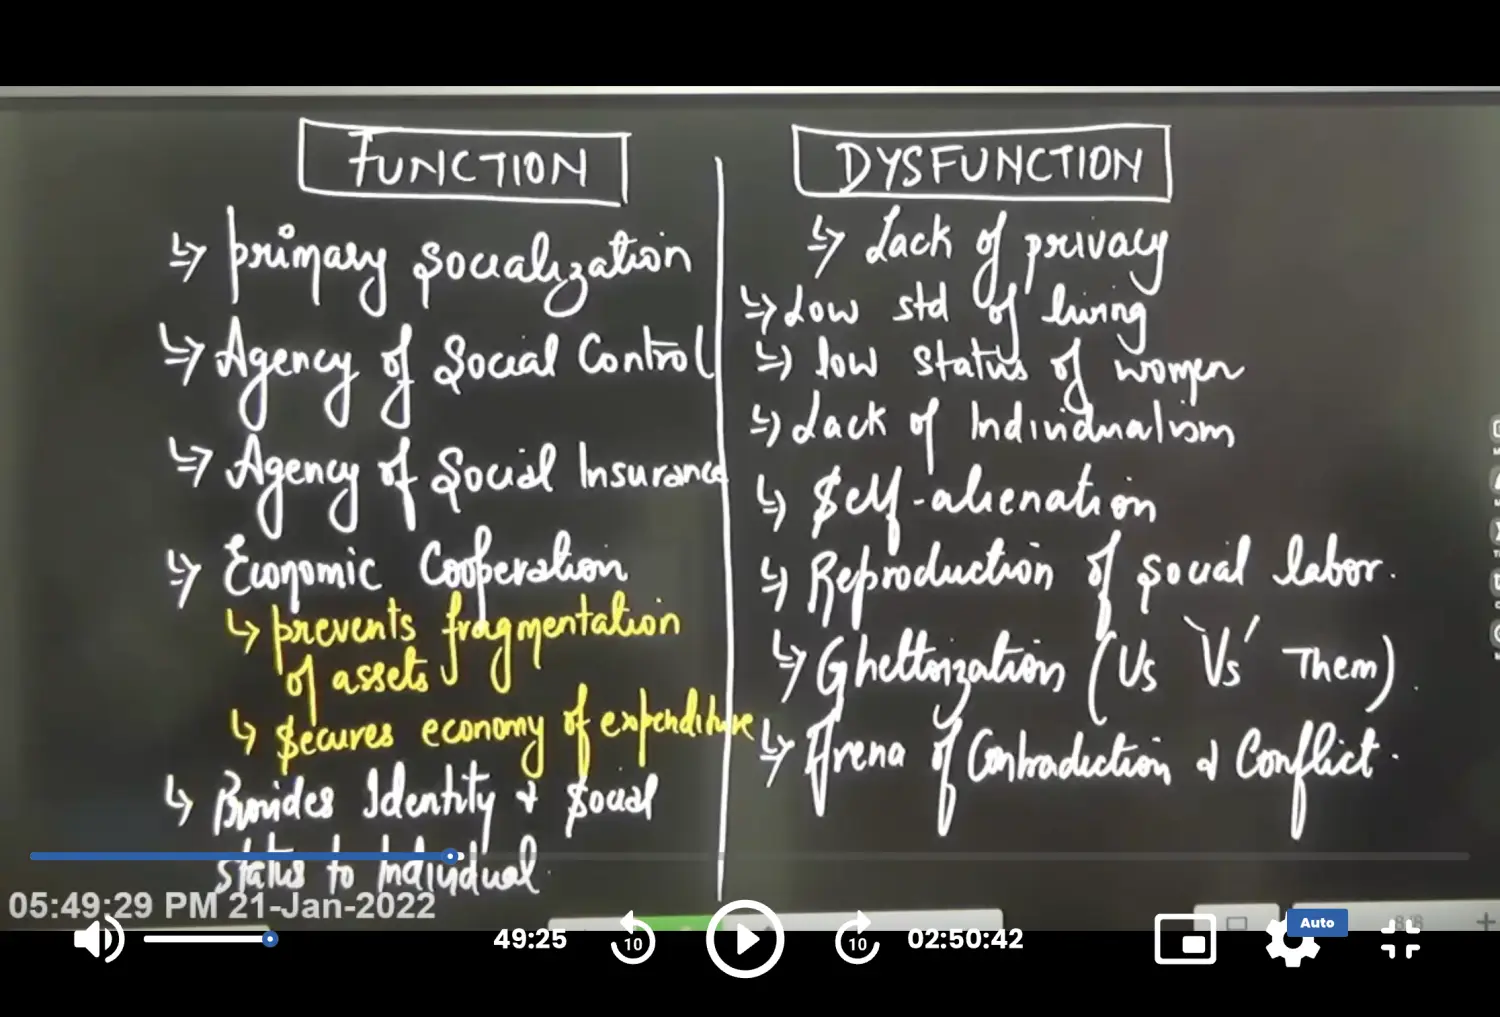 FUNCTION
↳ Primary Socialization
↳ Agency of Social Control
↳ Agency of Social Insurance
↳ Economic Cooperation
↳ prevents fragmentation
of assets
↳ Secures economy of expenditure
↳ Provides Identity & Social
status to Individual.
DYSFUNCTION
↳ Lack of privacy
↳ Low std of living
↳ low status of women
↳ Lack of Individualism
↳ Self-alienation
↳ Reproduction of social labor.
↳ Ghettoization (Us 'Vs' Them).
↳ Arena of Contradiction & Conflict.
05:49:29 PM 21-Jan-2022
49:25
10
10
02:50:42
Auto